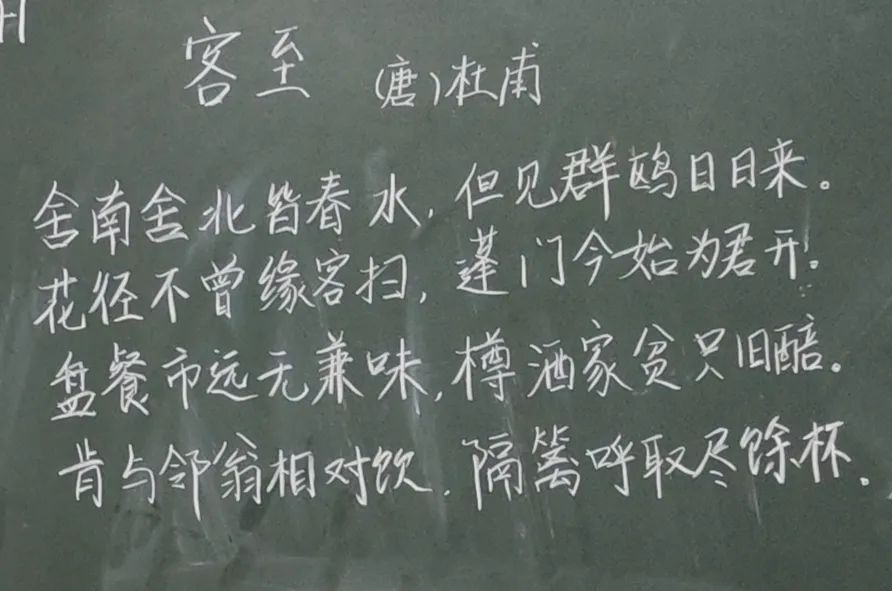 客至 (唐)杜甫
舍南舍北皆春水,但见群鸥日日来。
花径不曾缘客扫,蓬门今始为君开。
盘餐市远无兼味,樽酒家贫只旧醅。
肯与邻翁相对饮.隔篱呼取尽馀杯.